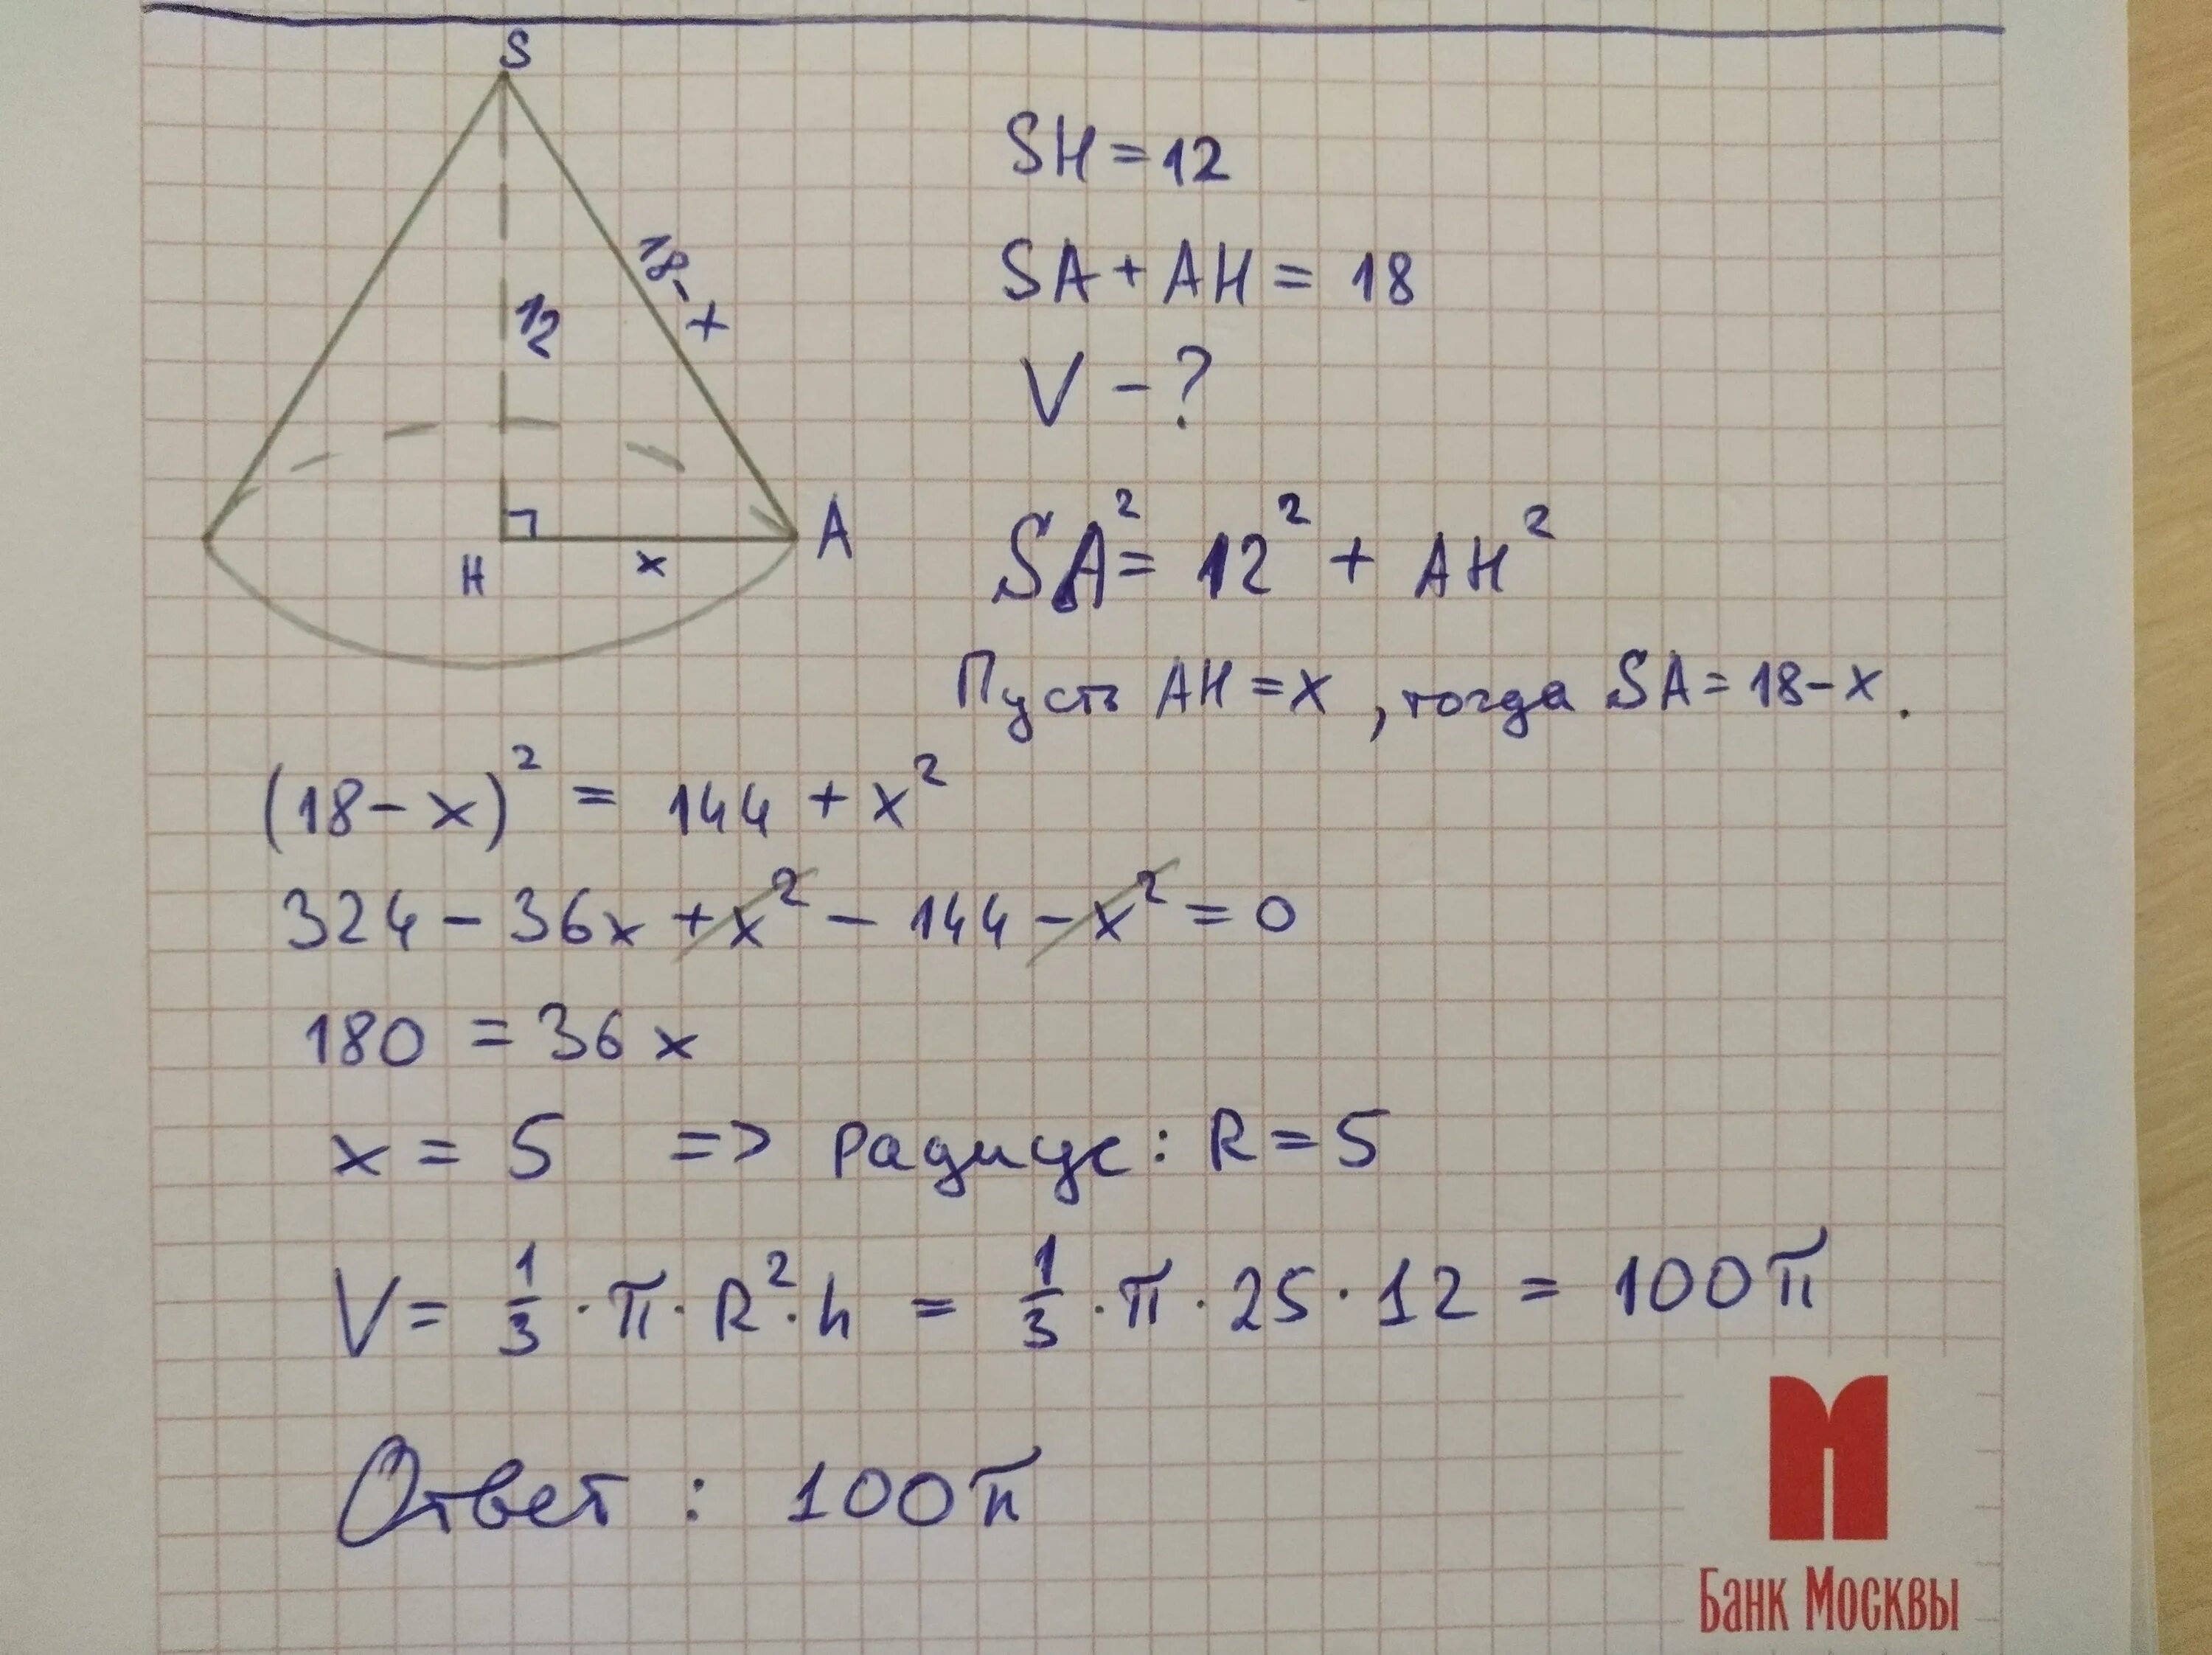 S
12
18-x
H
x
A
SH = 12
SA + AH = 18
V - ?
SA² = 12² + AH²
Пусть AH = x, тогда SA = 18-x.
(18-x)² = 144 + x²
324 - 36x + x² - 144 - x² = 0
180 = 36x
x = 5 => радиус: R = 5
V = 1/3 · π · R² · h = 1/3 · π · 25 · 12 = 100π
Ответ : 100π
Банк Москвы